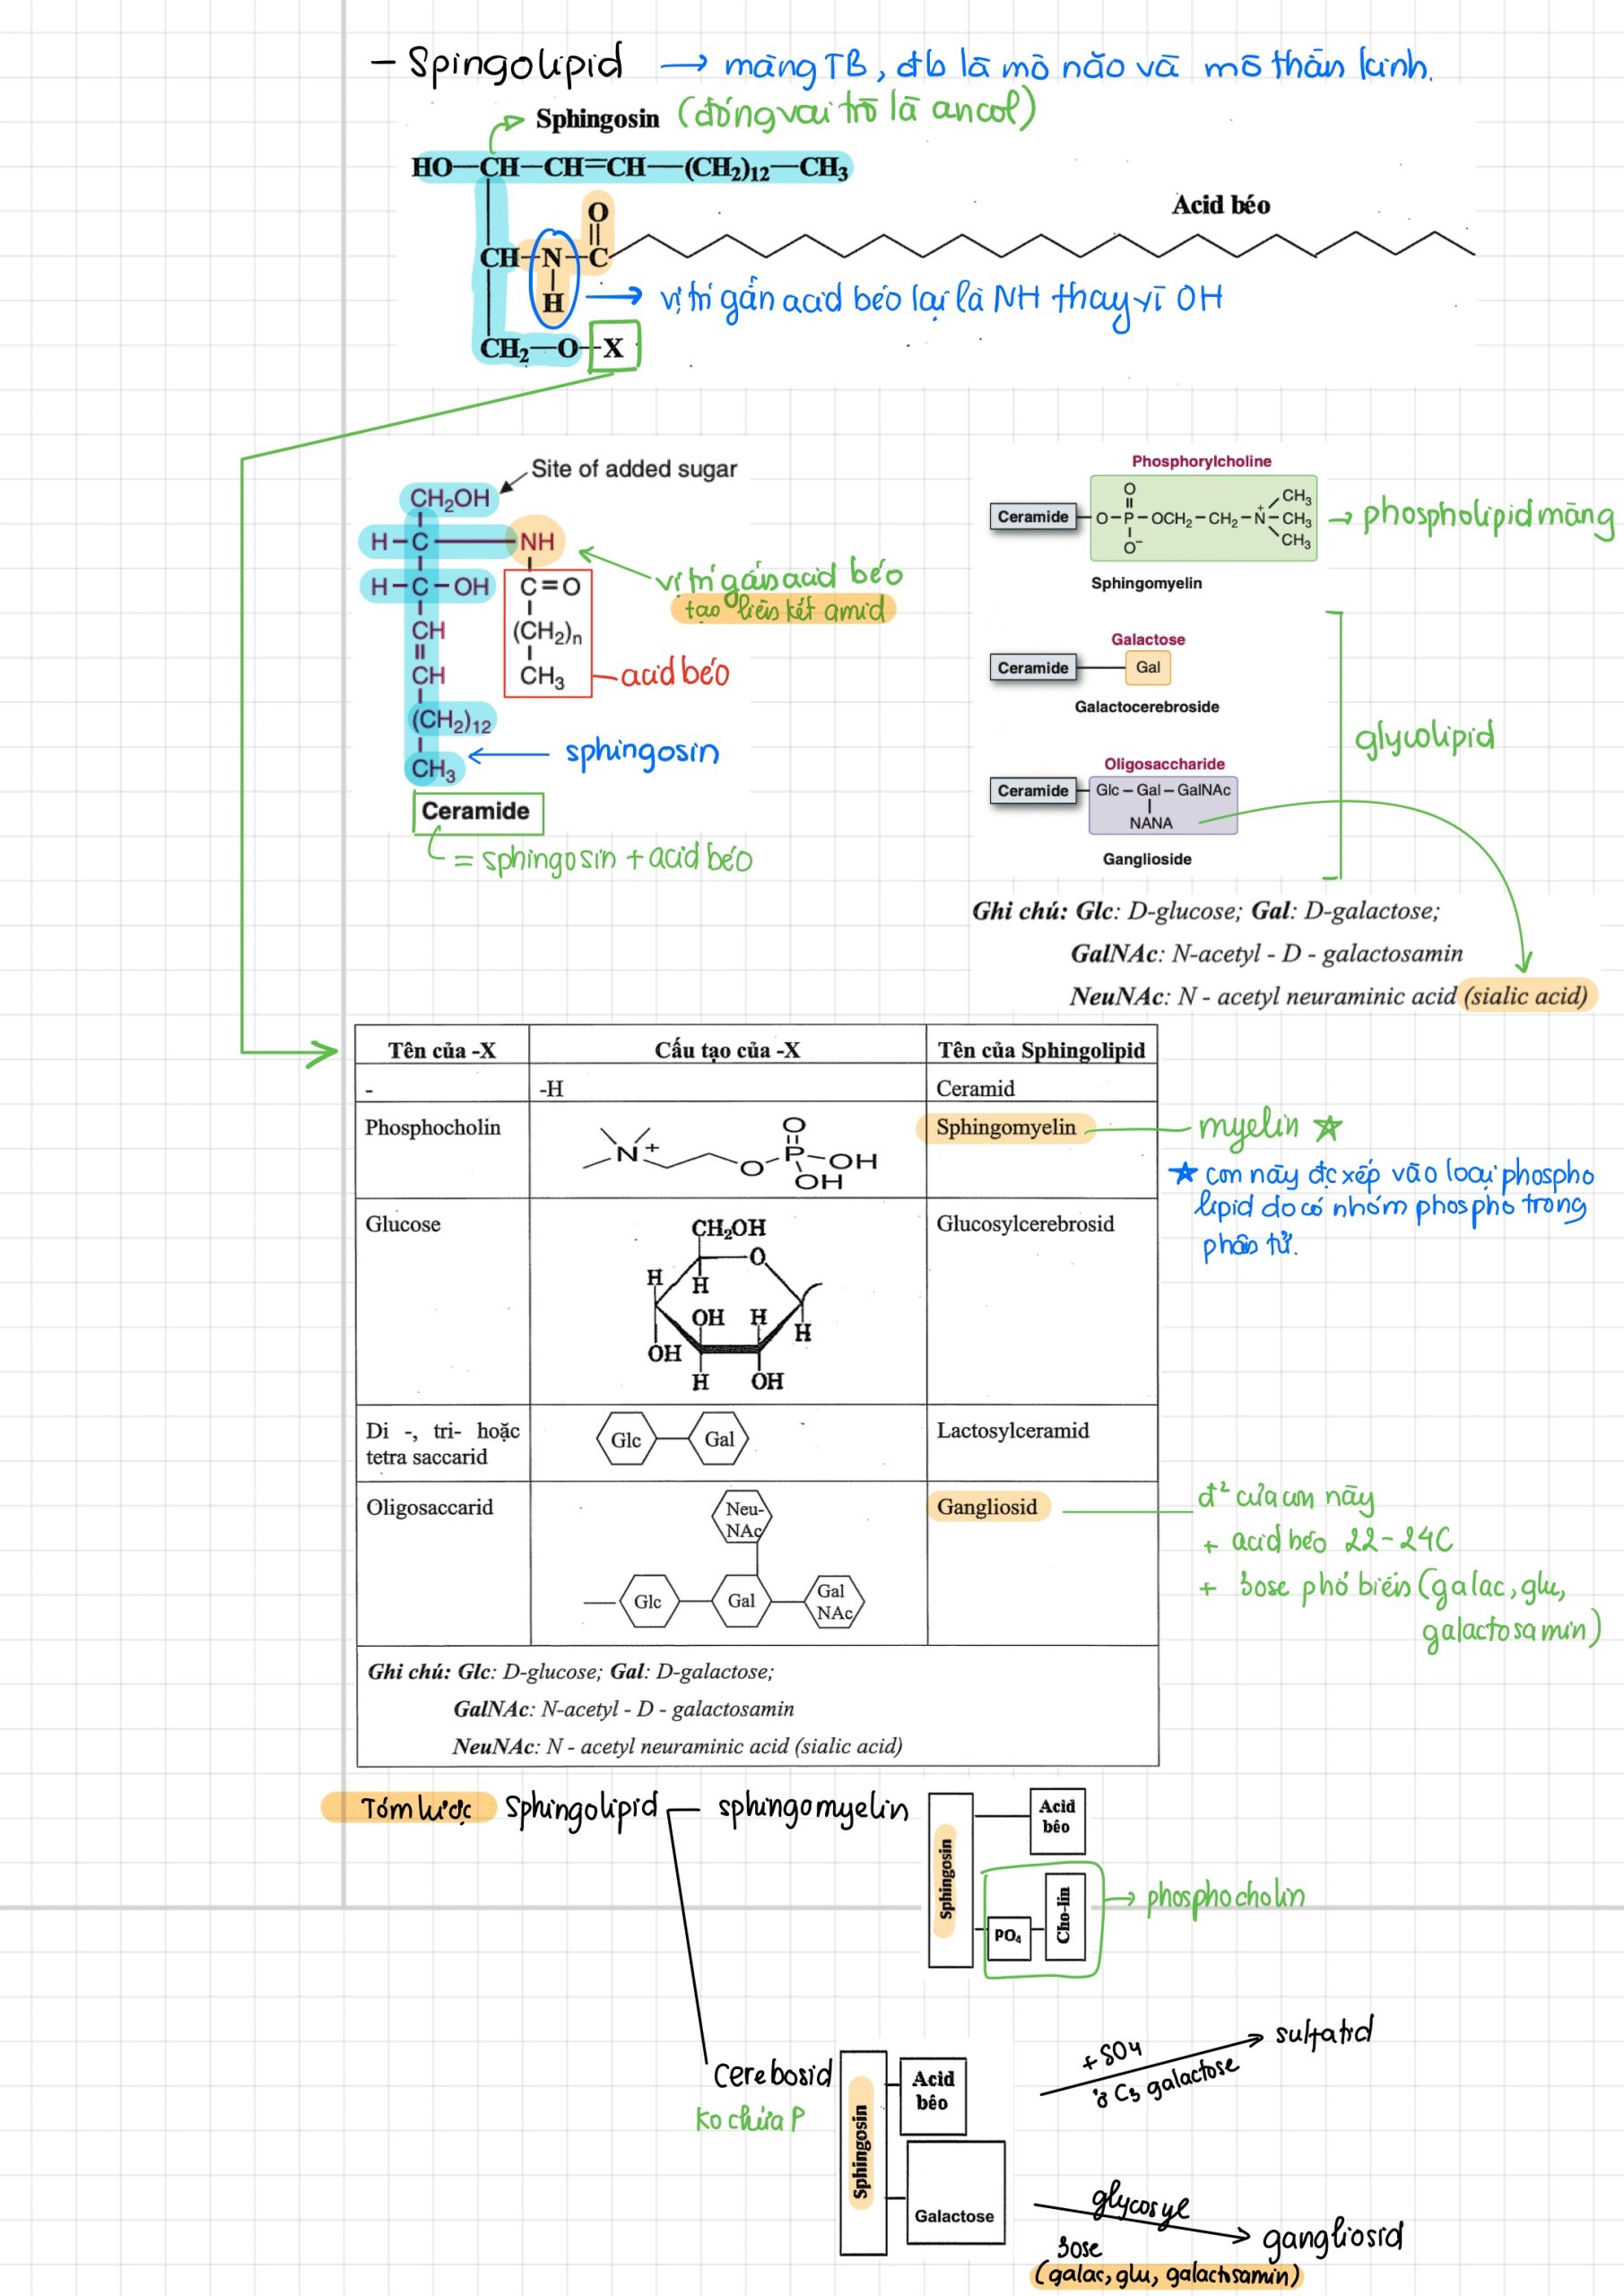 - Spingolipid → màng TB, đb là mô não và mô thần kinh.
Sphingosin (đóng vai trò là ancol)
HO—CH—CH=CH—(CH₂)₁₂—CH₃
Acid béo
O
CH—N—C
H → vị trí gắn acid béo lại là NH thay vì OH
CH₂—O—X
Site of added sugar
CH₂OH
H—C—NH
H—C—OH
C=O
CH
(CH₂)n
CH
CH₃
(CH₂)₁₂
CH₃
vị trí gắn acid béo
tạo liên kết amid
acid béo
sphingosin
Ceramide
= sphingosin + acid béo
Phosphorylcholine
Ceramide
O
O—P—OCH₂—CH₂—N⁺—CH₃
CH₃
CH₃
O⁻
→ phospholipid màng
Sphingomyelin
Galactose
Ceramide Gal
Galactocerebroside
glycolipid
Oligosaccharide
Ceramide Glc – Gal – GalNAc
NANA
Ganglioside
Ghi chú: Glc: D-glucose; Gal: D-galactose;
GalNAc: N-acetyl - D - galactosamin
NeuNAc: N - acetyl neuraminic acid (sialic acid)
Tên của -X Cấu tạo của -X Tên của Sphingolipid
- -H Ceramid
Phosphocholin Sphingomyelin
N⁺ O P O OH OH
myelin ☆
★ con này đc xếp vào loại phospho
lipid do có nhóm phospho trong
phân tử.
Glucose Glucosylcerebrosid
CH₂OH
O
H H
OH H H
OH
H OH
Di -, tri- hoặc
tetra saccarid
Glc Gal
Lactosylceramid
Oligosaccarid
Neu-
NAc
Glc Gal Gal
NAc
Gangliosid
đ² của con này
+ acid béo 22-24C
+ 3ose phổ biến (galac, glu,
galactosamin)
Ghi chú: Glc: D-glucose; Gal: D-galactose;
GalNAc: N-acetyl - D - galactosamin
NeuNAc: N - acetyl neuraminic acid (sialic acid)
Tóm lược Sphingolipid sphingomyelin
Sphingosin
Acid
béo
PO₄
Cho-lin
→ phosphocholin
Cerebosid
ko chứa P
Sphingosin
Acid
béo
Galactose
+ SO4
ở C3 galactose
sulfatid
glycosyl
3ose
(galac, glu, galactosamin)
gangliosid